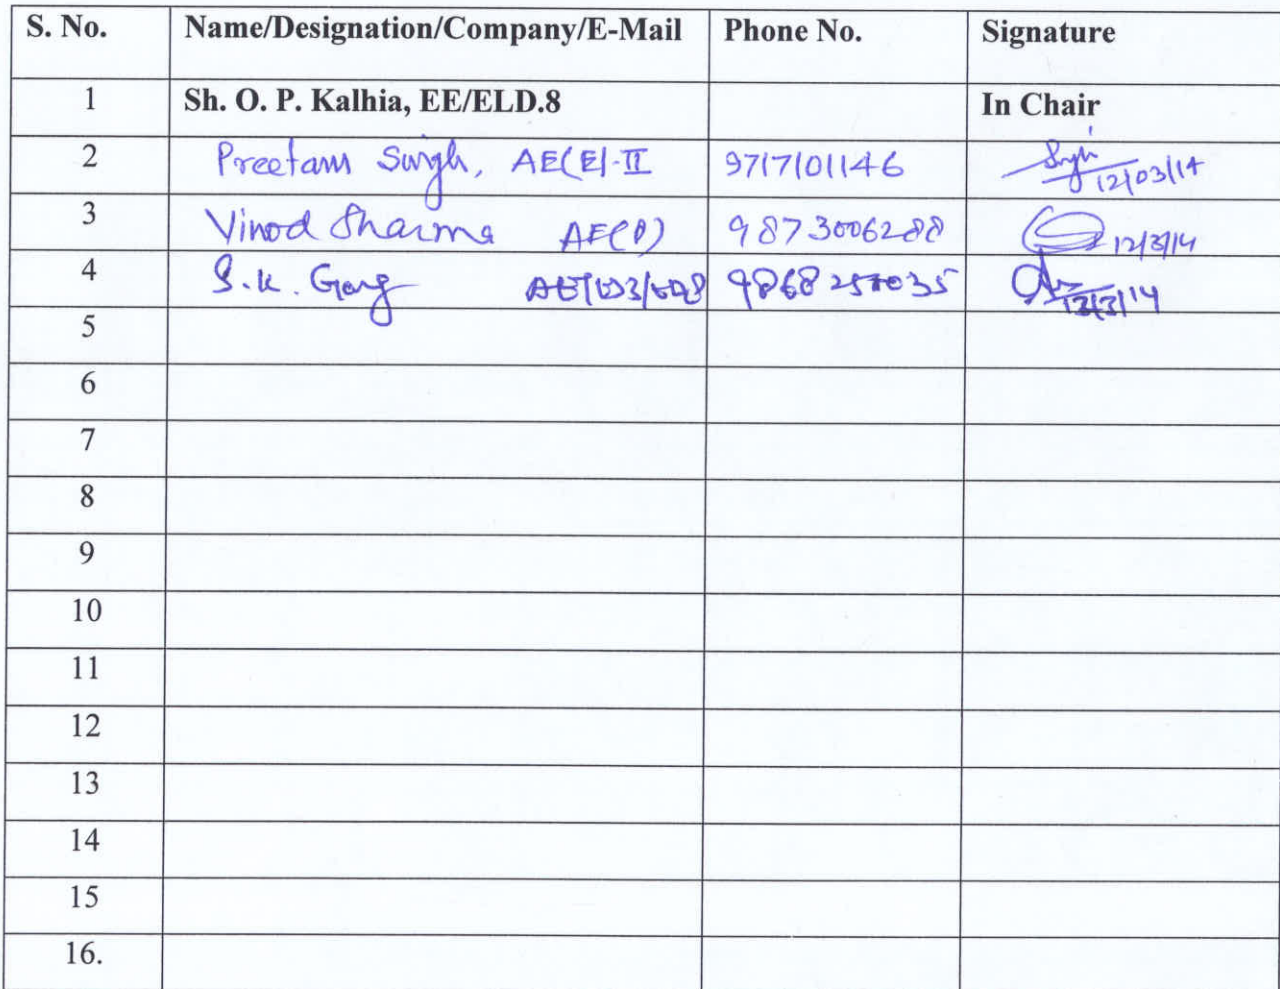 S. No. Name/Designation/Company/E-Mail Phone No. Signature
1 Sh. O. P. Kalhia, EE/ELD.8 In Chair
2 Preetam Singh, AE(E)-II 9717101146 Singh 12/03/14
3 Vinod Sharma AE(P) 9873006288 12/3/14
4 S.K. Garg 12/3/14
5
6
7
8
9
10
11
12
13
14
15
16.